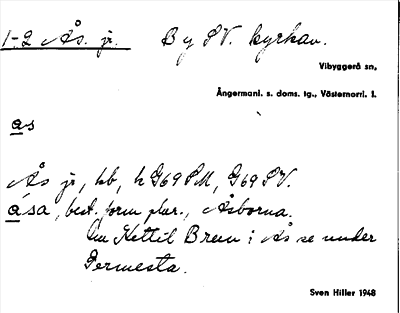 1-2 Ås. jr. By SV. kyrkan.
Vibyggerå sn,
Ångermanl. s. doms. tg., Västernorrl. l.
as
Ås jr, kb, h G69 SM, G69 SV.
åsa, best. form plur., Åsborna.
Om Kettil Breen i Ås se under
Germesta.
Sven Hiller 1948